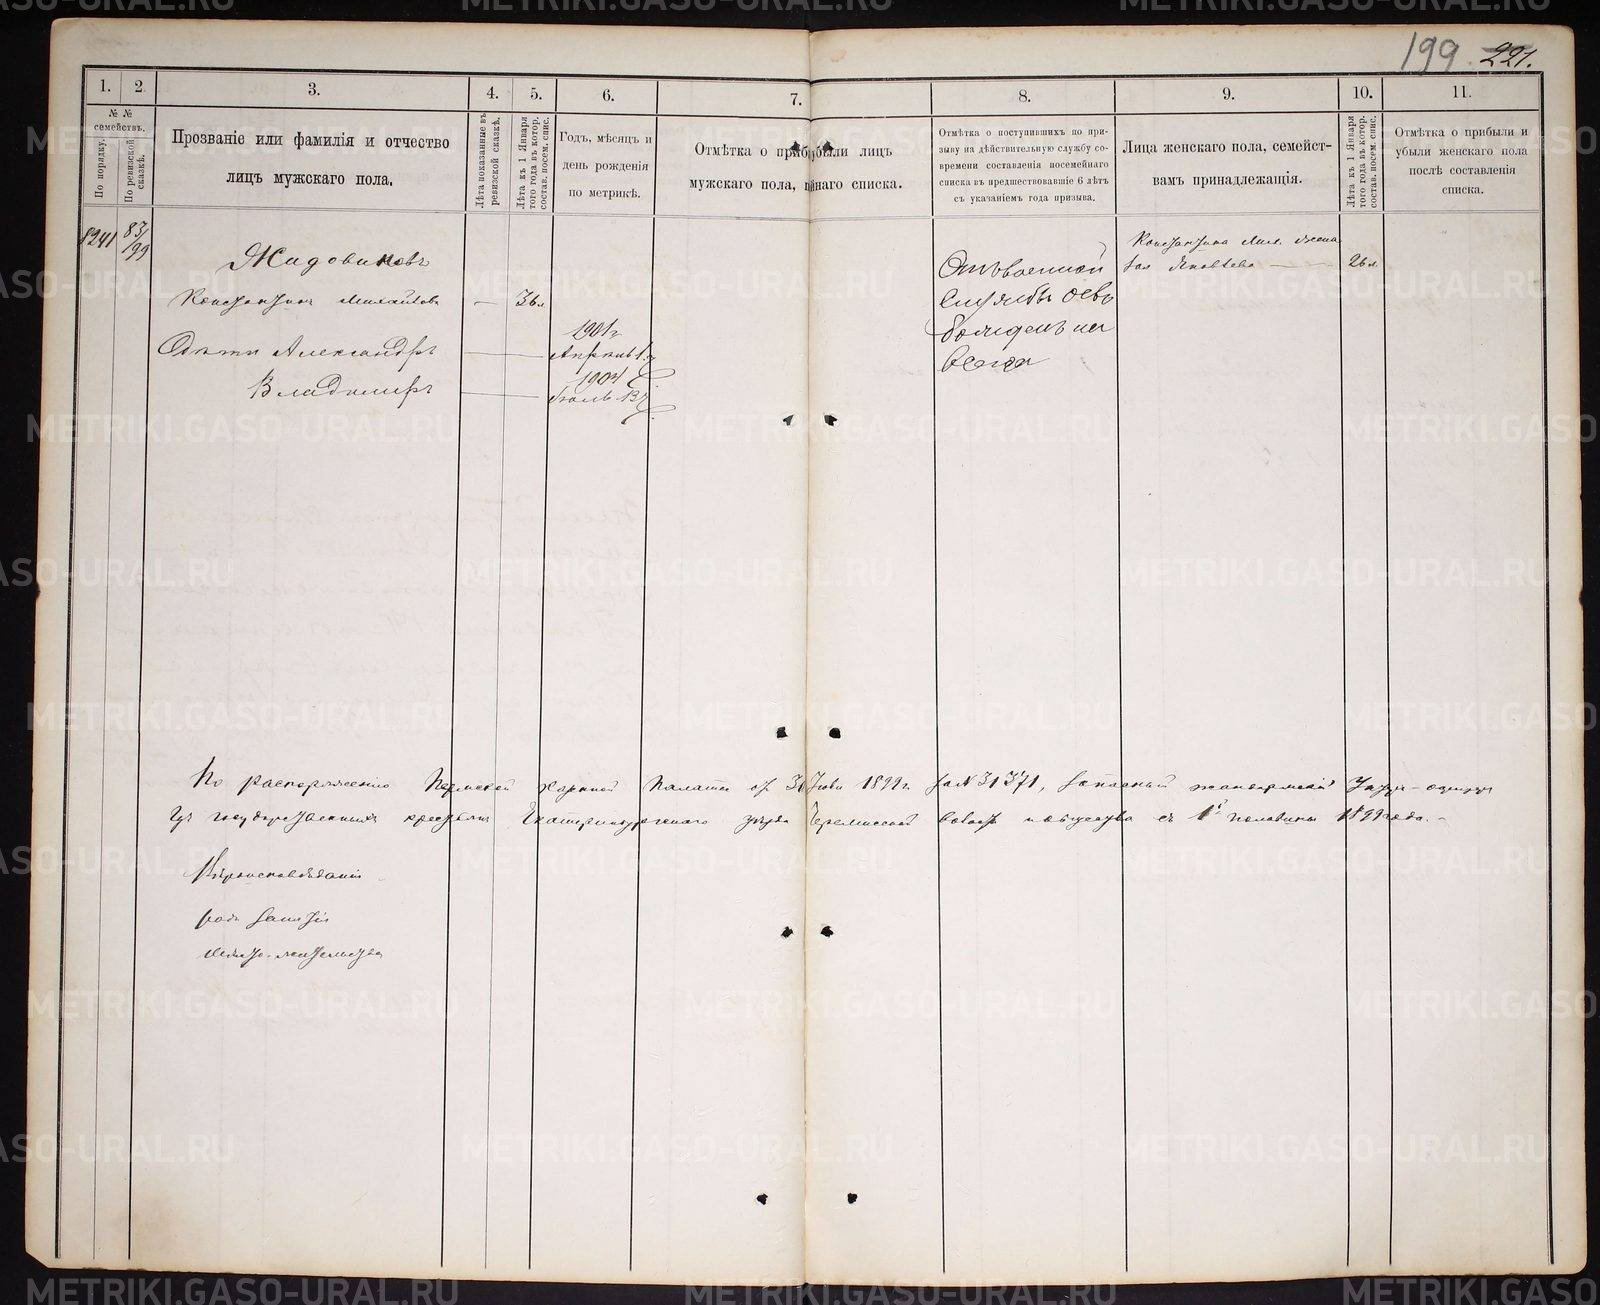 199 221.
1. 2 3. 4. 5. 6. 7. 8. 9. 10. 11.
№ № семействъ.
По порядку.
По ревизской сказкѣ.
Прозваніе или фамилія и отчество
лицъ мужскаго пола.
Лѣта показанные въ
ревизской сказкѣ.
Лѣта къ 1 Января
того года въ котор.
состав. посем. спис.
Годъ, мѣсяцъ и
день рожденія
по метрикѣ.
Отмѣтка о при были лицъ
мужскаго пола, наго списка.
Отмѣтка о поступившихъ по при-
зыву на дѣйствительную службу со-
времени составленія посемейнаго
списка въ предшествовавшіе 6 лѣтъ
съ указаніемъ года призыва.
Лица женскаго пола, семейст-
вамъ принадлежащія.
Лѣта къ 1 Января
того года въ котор.
состав. посем. спис.
Отмѣтка о прибыли и
убыли женскаго пола
послѣ составленія
списка.
8241 83/99
Жидовиновъ
Константинъ Михайловъ — 36л
Дѣти Александръ 1901г Апрѣль
Владимиръ 1904 Іюль 13
Отъ военной
службы осво
божденъ на
всегда
Константина Мих. жена
Яковлева — 26л
По распоряженію Пермской Казенной Палаты от 31 1899г. за № 31371, запасный жандармскій Унтер-офицер
из государственныхъ крестьянъ Екатеринбургскаго уѣзда Черемисской волости и общества съ 1й половины 1899 года. -
Вѣроисповѣданія
родъ занятія
мѣсто-жительства
METRIKI.GASO-URAL.RU